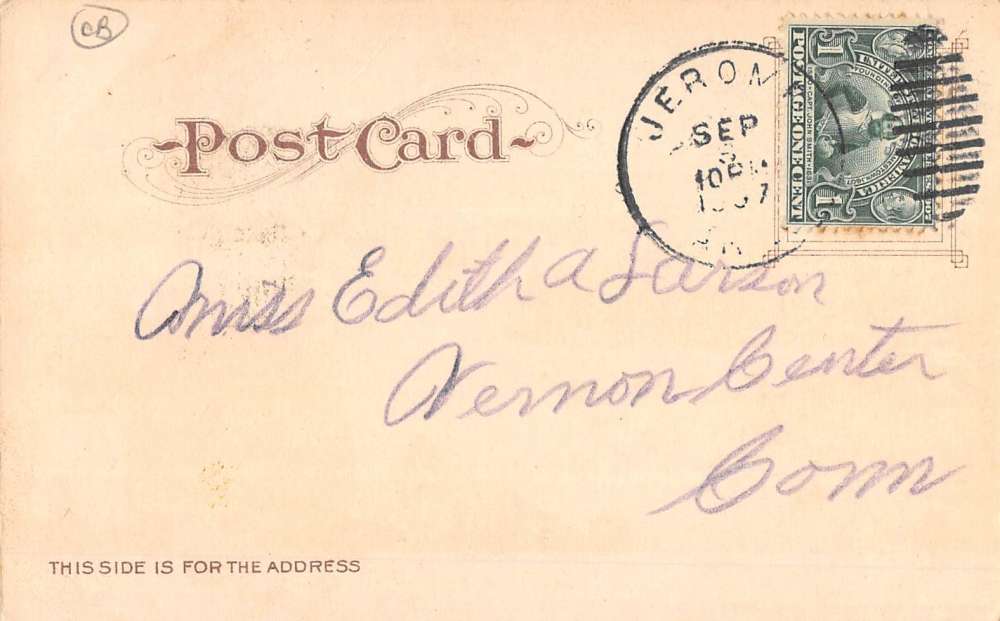 CB
Post Card
JEROM
SEP
10 PM
1907
AR
1 POSTAGE ONE CENT 1
CAPT. JOHN SMITH 1631
UNITED STATES OF AMERICA
FOUNDING
JAMESTOWN 1607
Miss Edith A Larson
Vernon Center
Conn
THIS SIDE IS FOR THE ADDRESS